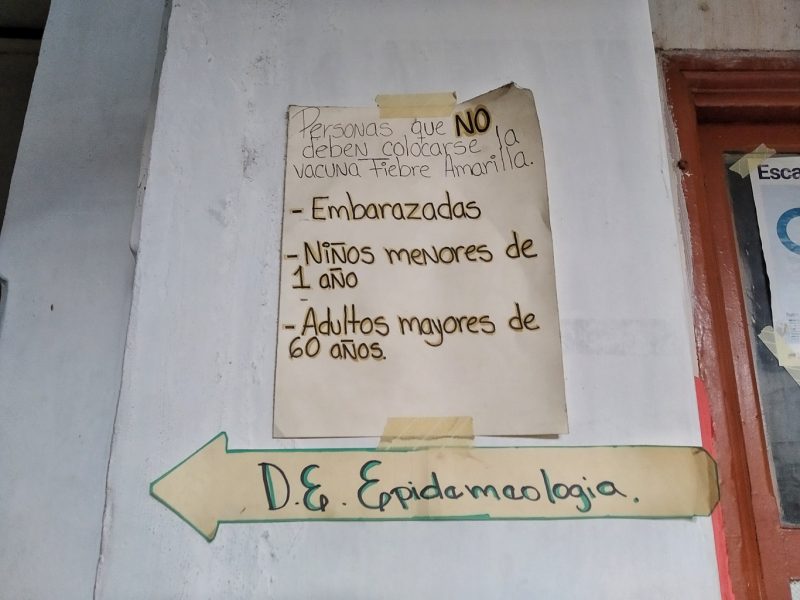 Personas que NO
deben colocarse la
vacuna Fiebre Amarilla.
- Embarazadas
- Niños menores de
1 año
- Adultos mayores de
60 años.
D.E. Epidemeologia.
Esca